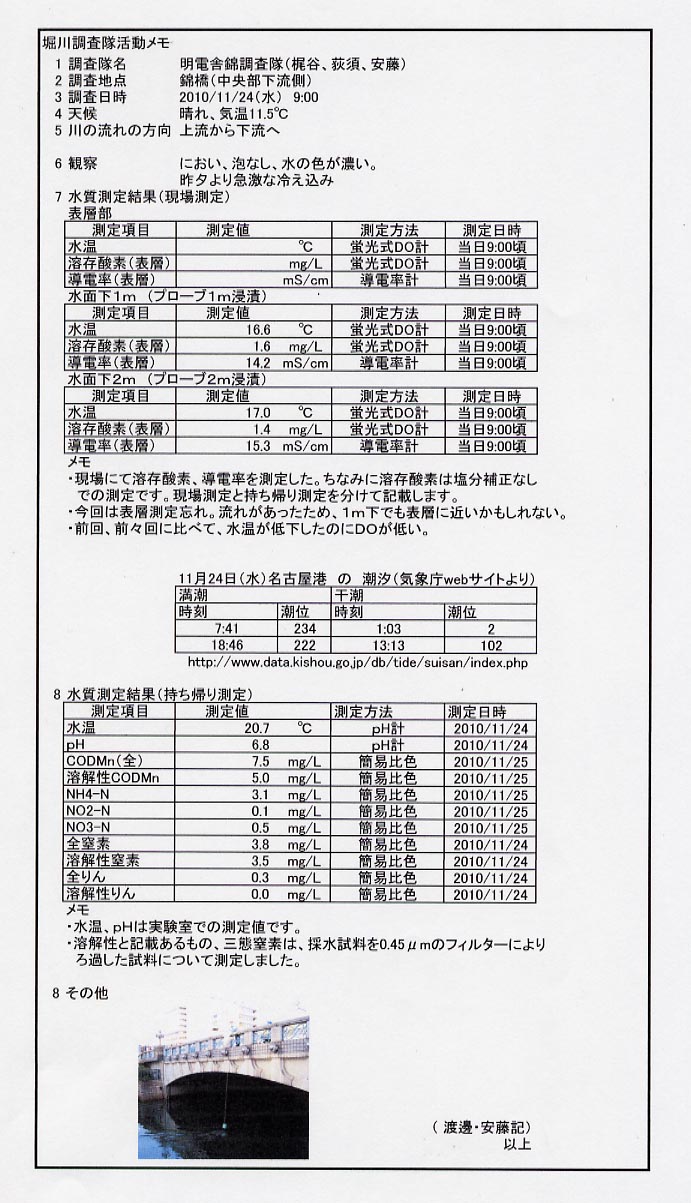 堀川調査隊活動メモ
1 調査隊名 明電舎錦調査隊(梶谷、荻須、安藤)
2 調査地点 錦橋(中央部下流側)
3 調査日時 2010/11/24(水) 9:00
4 天候 晴れ、気温11.5℃
5 川の流れの方向 上流から下流へ
6 観察 におい、泡なし、水の色が濃い。
昨夕より急激な冷え込み
7 水質測定結果(現場測定)
表層部
測定項目 測定値 測定方法 測定日時
水温 ℃ 蛍光式DO計 当日9:00頃
溶存酸素(表層) mg/L 蛍光式DO計 当日9:00頃
導電率(表層) mS/cm 導電率計 当日9:00頃
水面下1m (プローブ1m浸漬)
測定項目 測定値 測定方法 測定日時
水温 16.6 ℃ 蛍光式DO計 当日9:00頃
溶存酸素(表層) 1.6 mg/L 蛍光式DO計 当日9:00頃
導電率(表層) 14.2 mS/cm 導電率計 当日9:00頃
水面下2m (プローブ2m浸漬)
測定項目 測定値 測定方法 測定日時
水温 17.0 ℃ 蛍光式DO計 当日9:00頃
溶存酸素(表層) 1.4 mg/L 蛍光式DO計 当日9:00頃
導電率(表層) 15.3 mS/cm 導電率計 当日9:00頃
メモ
・現場にて溶存酸素、導電率を測定した。ちなみに溶存酸素は塩分補正なし
での測定です。現場測定と持ち帰り測定を分けて記載します。
・今回は表層測定忘れ。流れがあったため、1m下でも表層に近いかもしれない。
・前回、前々回に比べて、水温が低下したのにDOが低い。
11月24日(水)名古屋港 の 潮汐(気象庁webサイトより)
満潮 干潮
時刻 潮位 時刻 潮位
7:41 234 1:03 2
18:46 222 13:13 102
http://www.data.kishou.go.jp/db/tide/suisan/index.php
8 水質測定結果(持ち帰り測定)
測定項目 測定値 測定方法 測定日時
水温 20.7 ℃ pH計 2010/11/24
pH 6.8 pH計 2010/11/24
CODMn(全) 7.5 mg/L 簡易比色 2010/11/25
溶解性CODMn 5.0 mg/L 簡易比色 2010/11/25
NH4-N 3.1 mg/L 簡易比色 2010/11/25
NO2-N 0.1 mg/L 簡易比色 2010/11/25
NO3-N 0.5 mg/L 簡易比色 2010/11/25
全窒素 3.8 mg/L 簡易比色 2010/11/24
溶解性窒素 3.5 mg/L 簡易比色 2010/11/24
全りん 0.3 mg/L 簡易比色 2010/11/24
溶解性りん 0.0 mg/L 簡易比色 2010/11/24
メモ
・水温、pHは実験室での測定値です。
・溶解性と記載あるもの、三態窒素は、採水試料を0.45μmのフィルターにより
ろ過した試料について測定しました。
8 その他
(渡邊・安藤記)
以上